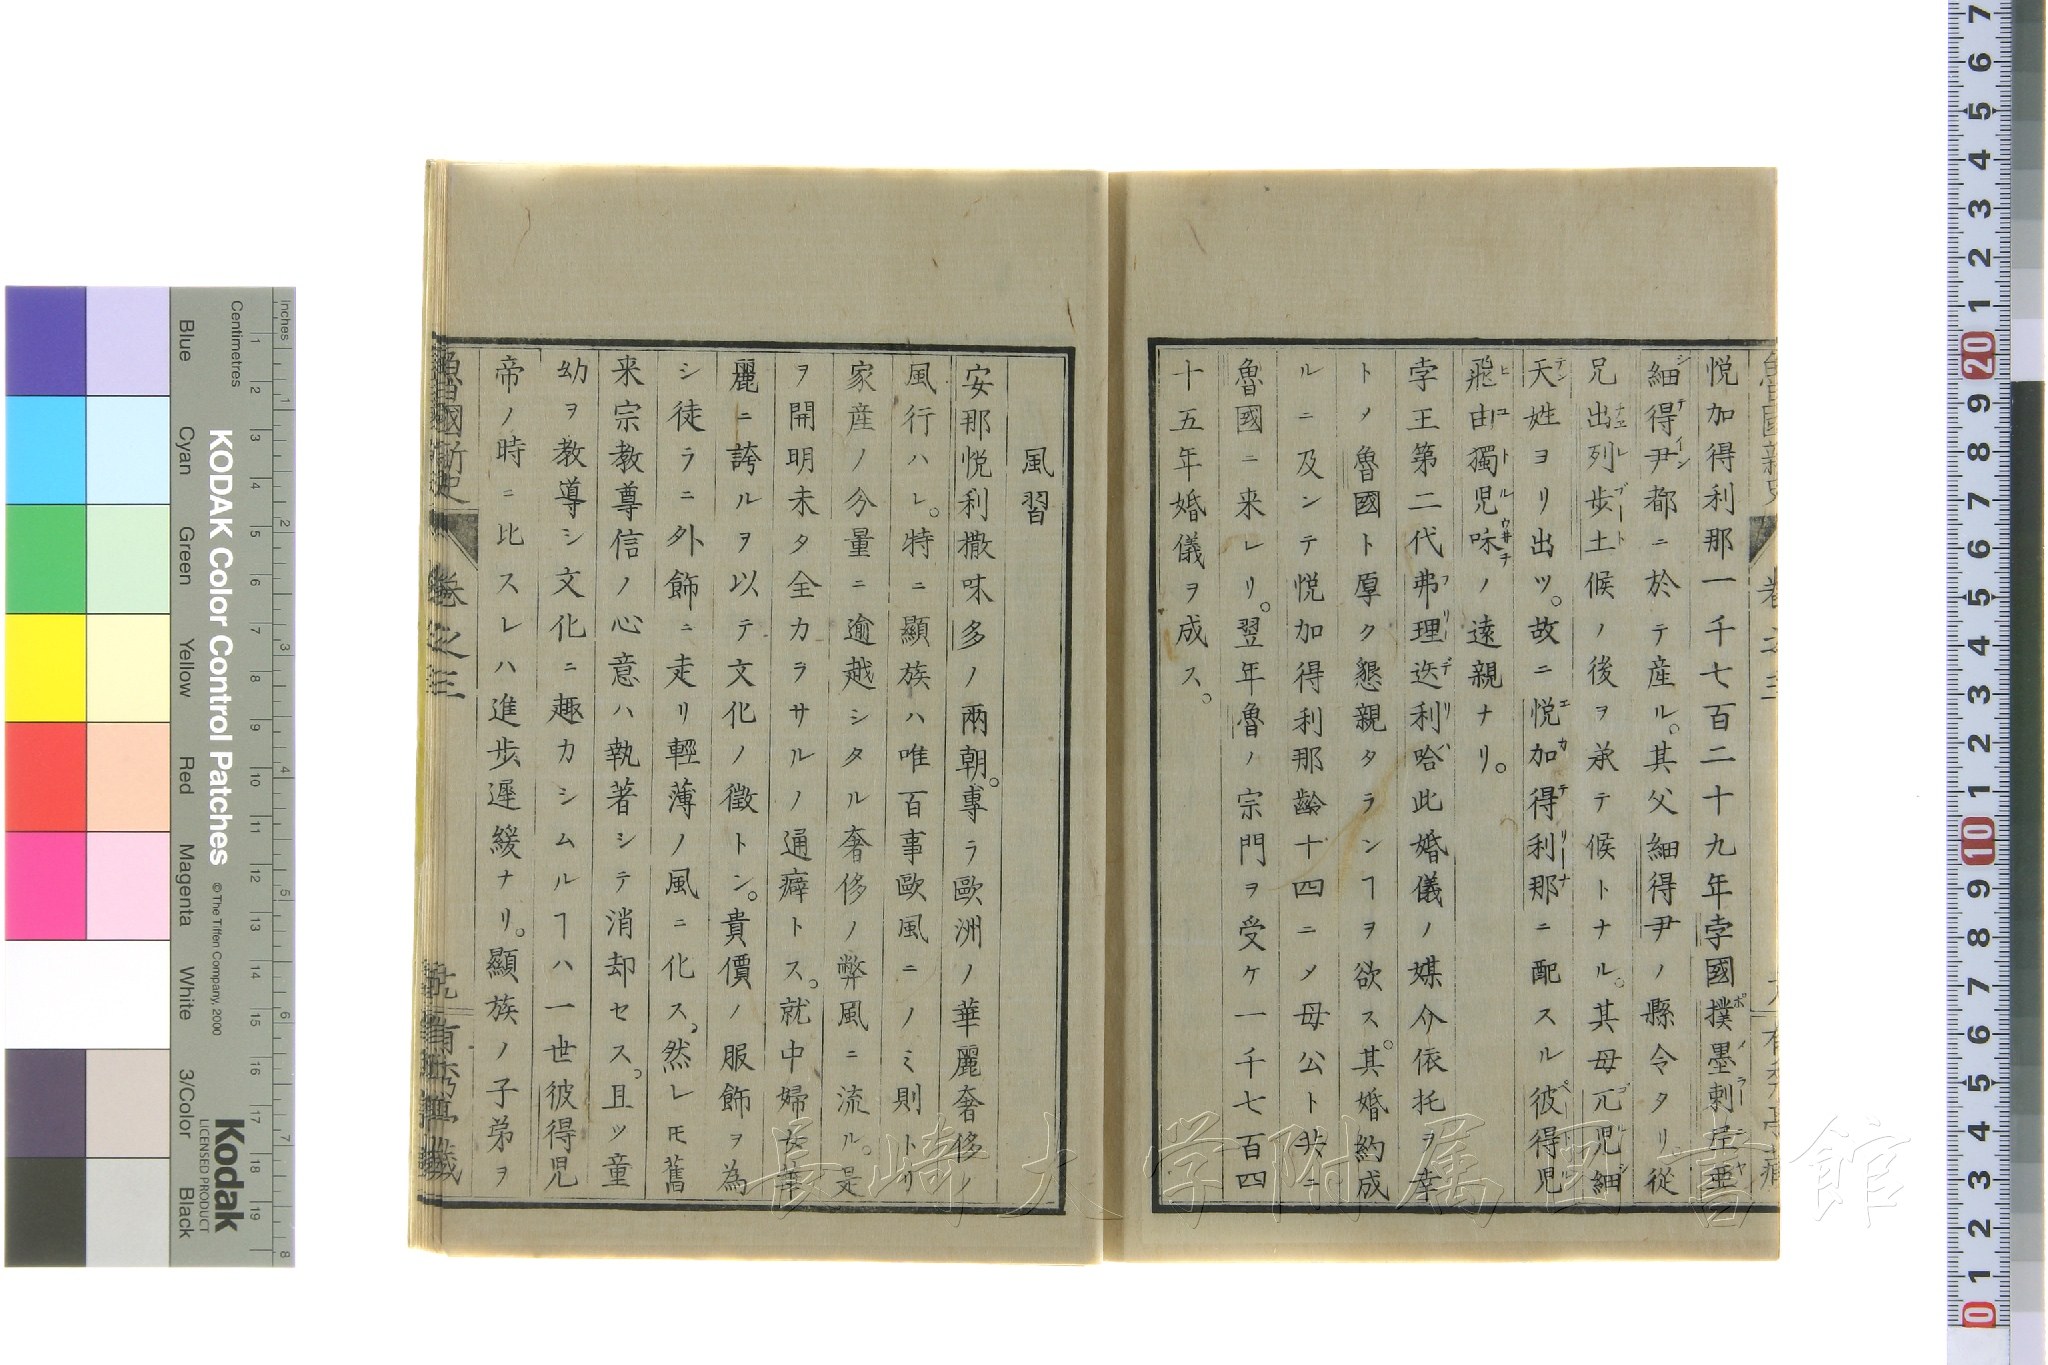 悦加得利那一千七百二十九年孛國撲墨刺屋亜
細得尹都ニ於テ産ル。其父細得尹ノ縣令タリ従
兄出列歩土候ノ後ヲ承テ候トナル。其母兀児細
天姓ヨリ出ツ。故ニ悦加得利那ニ配スル彼得児
飛由獨児咊ノ遠親ナリ。
孛王第二代弗理迭利哈此婚儀ノ媒介依托ヲ幸
トノ魯國ト厚ク懇親タランヿヲ欲ス。其婚約成
ルニ及ンテ悦加得利那齢十四ニメ母公ト共ニ
魯國ニ来レリ。翌年魯ノ宗門ヲ受ケ一千七百四
十五年婚儀ヲ成ス。
風習
安那悦利撒咊多ノ兩朝。専ラ歐洲ノ華麗奢侈ノ
風行ハレ。特ニ顯族ハ唯百事歐風ニノミ則トリ
家産ノ分量ニ逾越シタル奢侈ノ弊風ニ流ル。是
ヲ開明未タ全カラサルノ通癖トス。就中婦女華
麗ニ誇ルヲ以テ文化ノ徴トン。貴價ノ服飾ヲ為
シ徒ラニ外飾ニ走リ輕薄ノ風ニ化ス。然レ𪜈舊
来宗教尊信ノ心意ハ執著シテ消却セス。且ツ童
幼ヲ教導シ文化ニ趣カシムルヿハ一世彼得児
帝ノ時ニ比スレハ進歩遲緩ナリ。顯族ノ子弟ヲ
魯國新史 巻之三
長崎大学附属図書館
KODAK Color Control Patches
© The Tiffen Company, 2000
Kodak
LICENSED PRODUCT
Centimetres
inches
Blue
Cyan
Green
Yellow
Red
Magenta
White
3/Color
Black